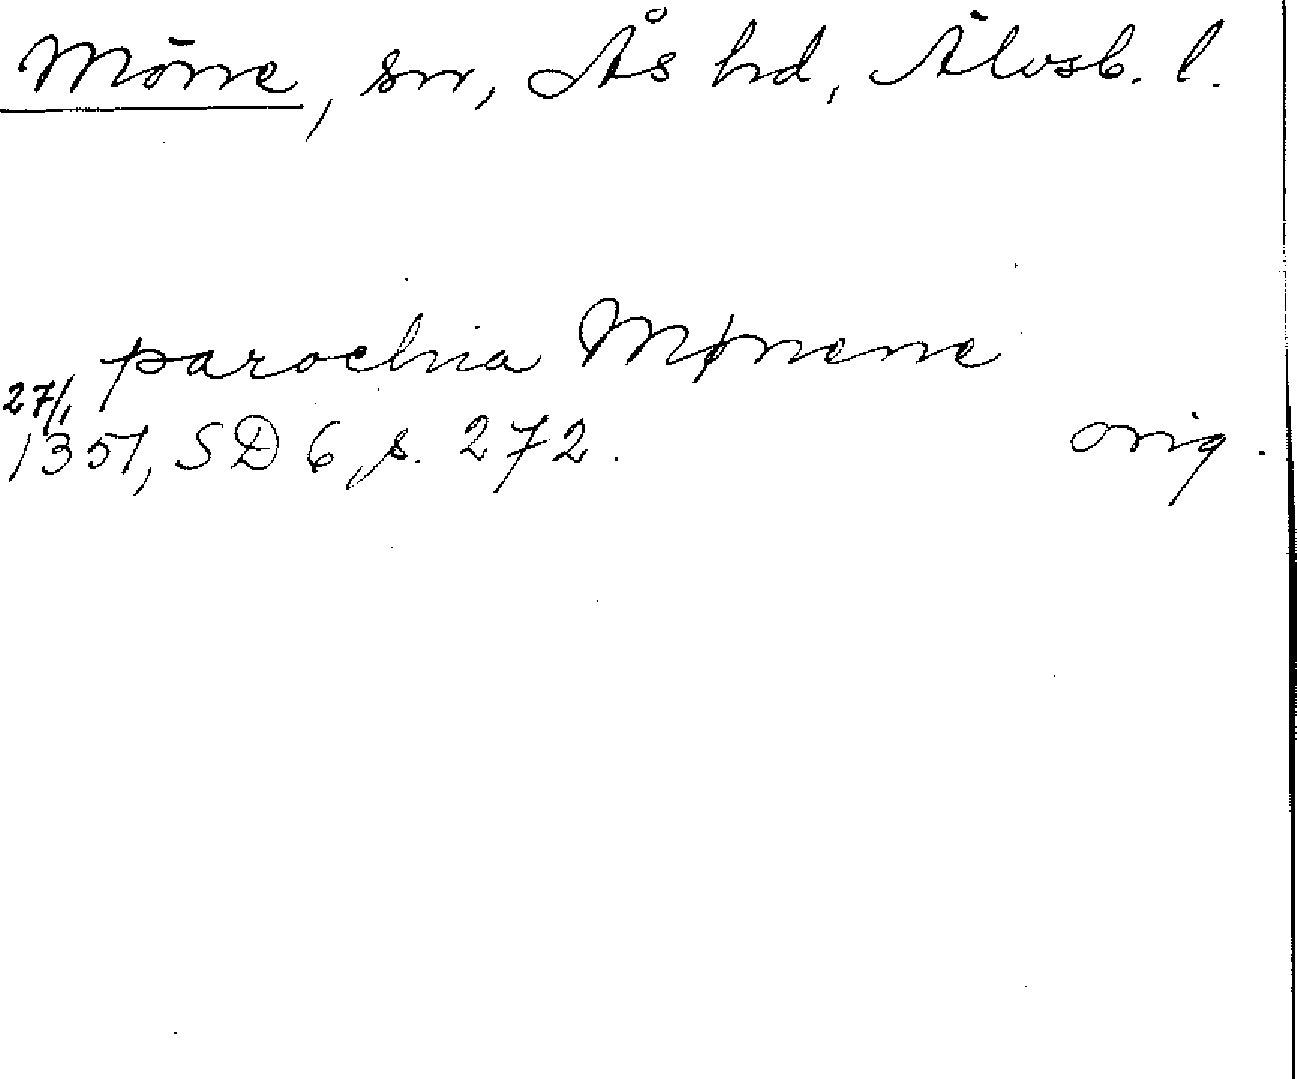 Möne, sn, Ås hd, Älvsb. l.
parochia Mønene
27/1
1351, SD 6, s. 272. orig.